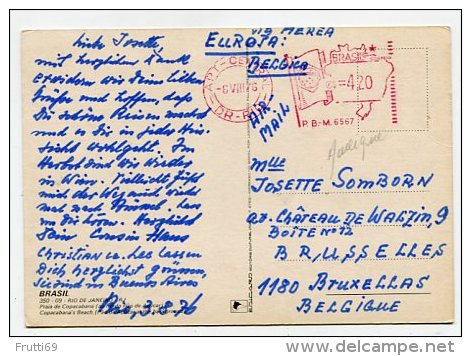 Liebe Josette,
mit herzlichem Dank
erwidern wir Deine lieben
Grüsse und hoffen, dass
Du schöne Reisen machst
und es Dir in jeder Hin-
sicht wohlgeht. Im
Herbst sind wir wieder
in Wien. Vielleicht führt
mich der Weg auch wieder
nach Brüssel. Lass
Dein Cousin Hans
Christian u. Lea lassen
Dich herzlichst grüssen,
sie sind in Buenos Aires
Rio 3.8.76
BRASIL
350 - 09 - RIO DE JANEIRO
Praia de Copacabana
Copacabana's Beach
VIA AEREA
EUROPA:
BELGICA
AIR
MAIL
APT-CENTRAL
-6 VIII 76
DR-RIO
BRASIL
=4,20
P.B.M. 6567
Mlle
JOSETTE SOMBORN
av. CHÂTEAU DE WALZIN, 9
BOITE Nº 12
BRUSSELLES
1180 BRUXELLAS
BELGIQUE
© Frutti69
http://www.delcampe.net